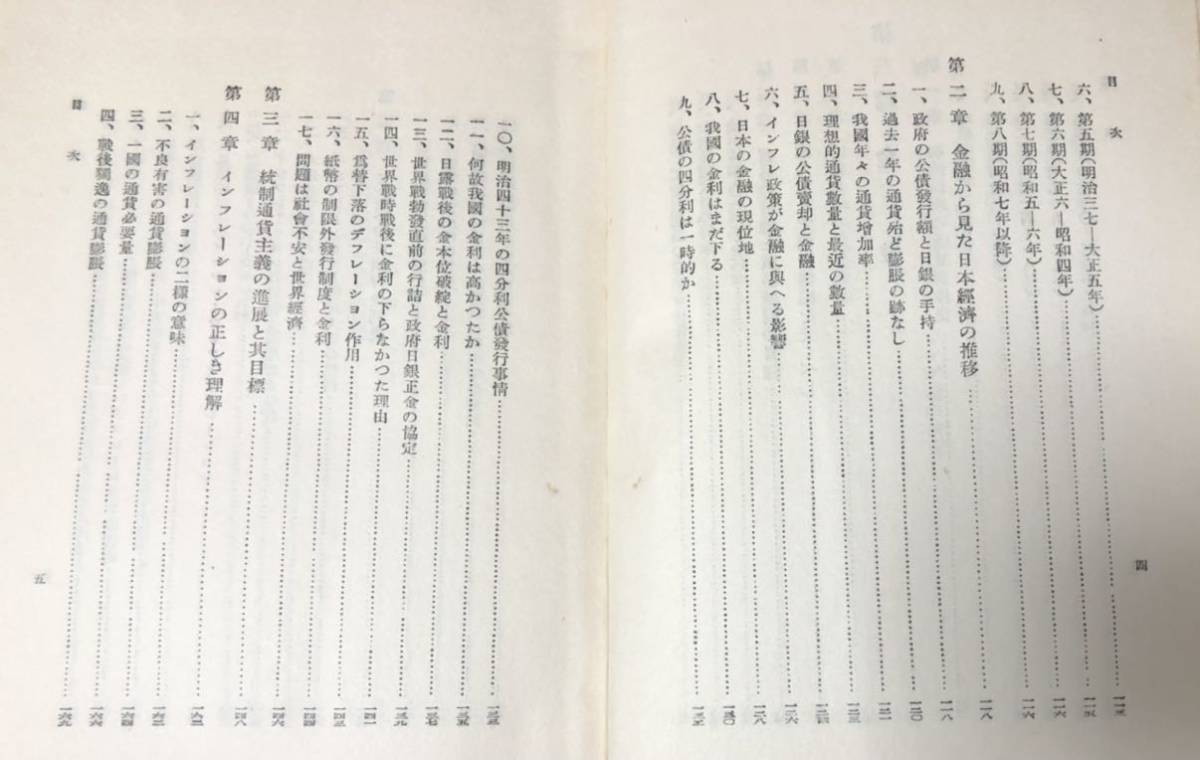 目次
六、第五期(明治三七―大正五年)
七、第六期(大正六―昭和四年)
八、第七期(昭和五―六年)
九、第八期(昭和七年以降)
第二章 金融から見た日本經濟の推移
一、政府の公債發行額と日銀の手持
二、過去一年の通貨殆ど膨脹の跡なし
三、我國年々の通貨增加率
四、理想的通貨數量と最近の數量
五、日銀の公債賣却と金融
六、インフレ政策が金融に與へる影響
七、日本の金融の現位地
八、我國の金利はまだ下る
九、公債の四分利は一時的か
四
一〇、明治四十三年の四分利公債發行事情
一一、何故我國の金利は高かつたか
一二、日露戰後の金本位破綻と金利
一三、世界戰勃發直前の行詰と政府日銀正金の協定
一四、世界戰時戰後に金利の下らなかつた理由
一五、爲替下落のデフレーション作用
一六、紙幣の制限外發行制度と金利
一七、問題は社會不安と世界經濟
第三章 統制通貨主義の進展と其目標
第四章 インフレーションの正しき理解
一、インフレーションの二樣の意味
二、不良有害の通貨膨脹
三、一國の通貨必要量
四、戰後獨逸の通貨膨脹
目次
五